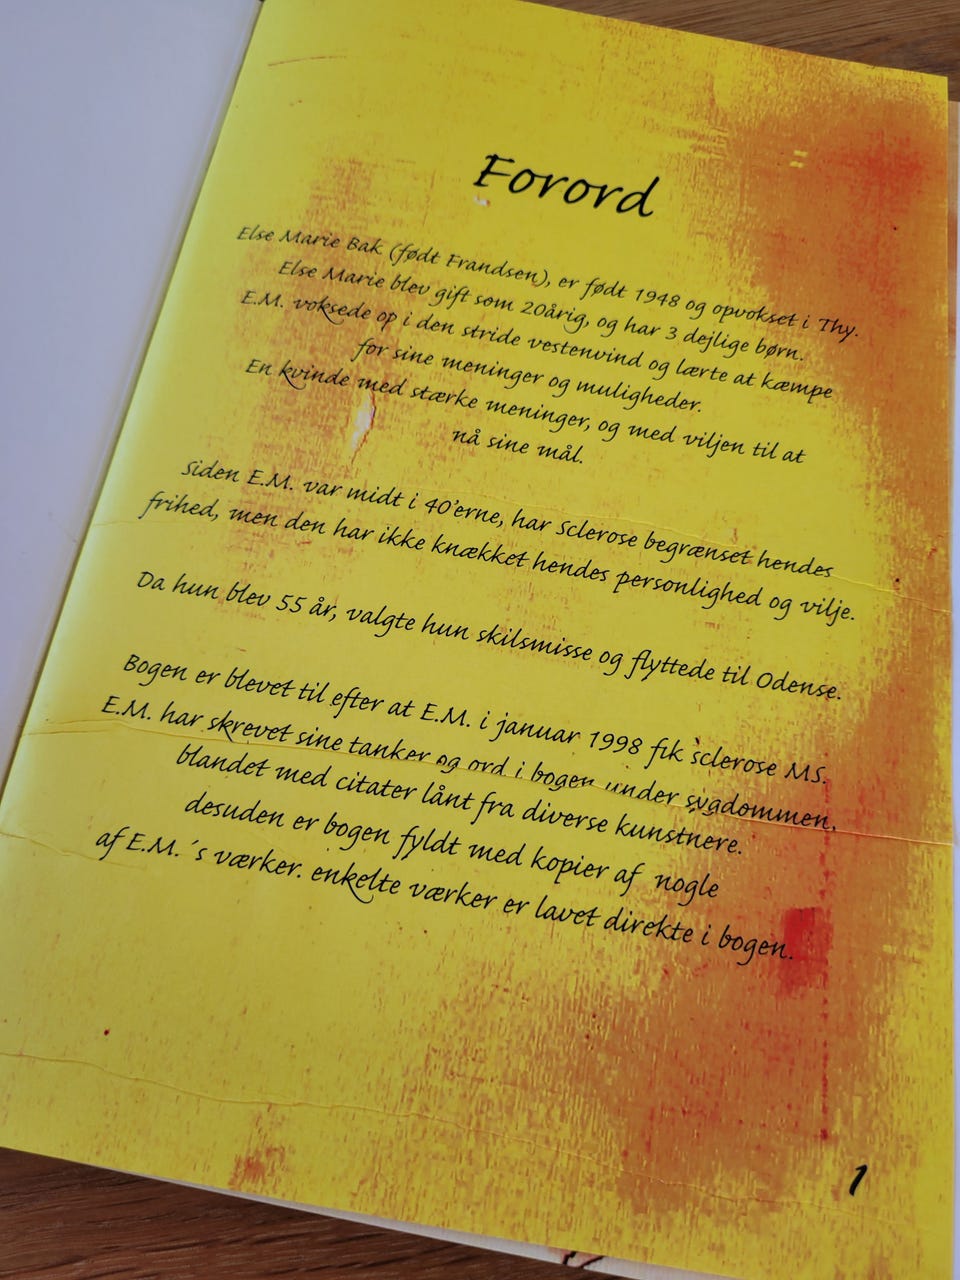 Forord
Else Marie Bak (født Frandsen), er født 1948 og opvokset i Thy.
Else Marie blev gift som 20årig, og har 3 dejlige børn.
E.M. voksede op i den stride vestenvind og lærte at kæmpe
for sine meninger og muligheder.
En kvinde med stærke meninger, og med viljen til at
nå sine mål.
Siden E.M. var midt i 40'erne, har Sclerose begrænset hendes
frihed, men den har ikke knækket hendes personlighed og vilje.
Da hun blev 55 år, valgte hun skilsmisse og flyttede til Odense.
Bogen er blevet til efter at E.M. i januar 1998 fik sclerose MS.
E.M. har skrevet sine tanker og ord i bogen under sygdommen,
blandet med citater lånt fra diverse kunstnere.
desuden er bogen fyldt med kopier af nogle
af E.M.´s værker. enkelte værker er lavet direkte i bogen.
1